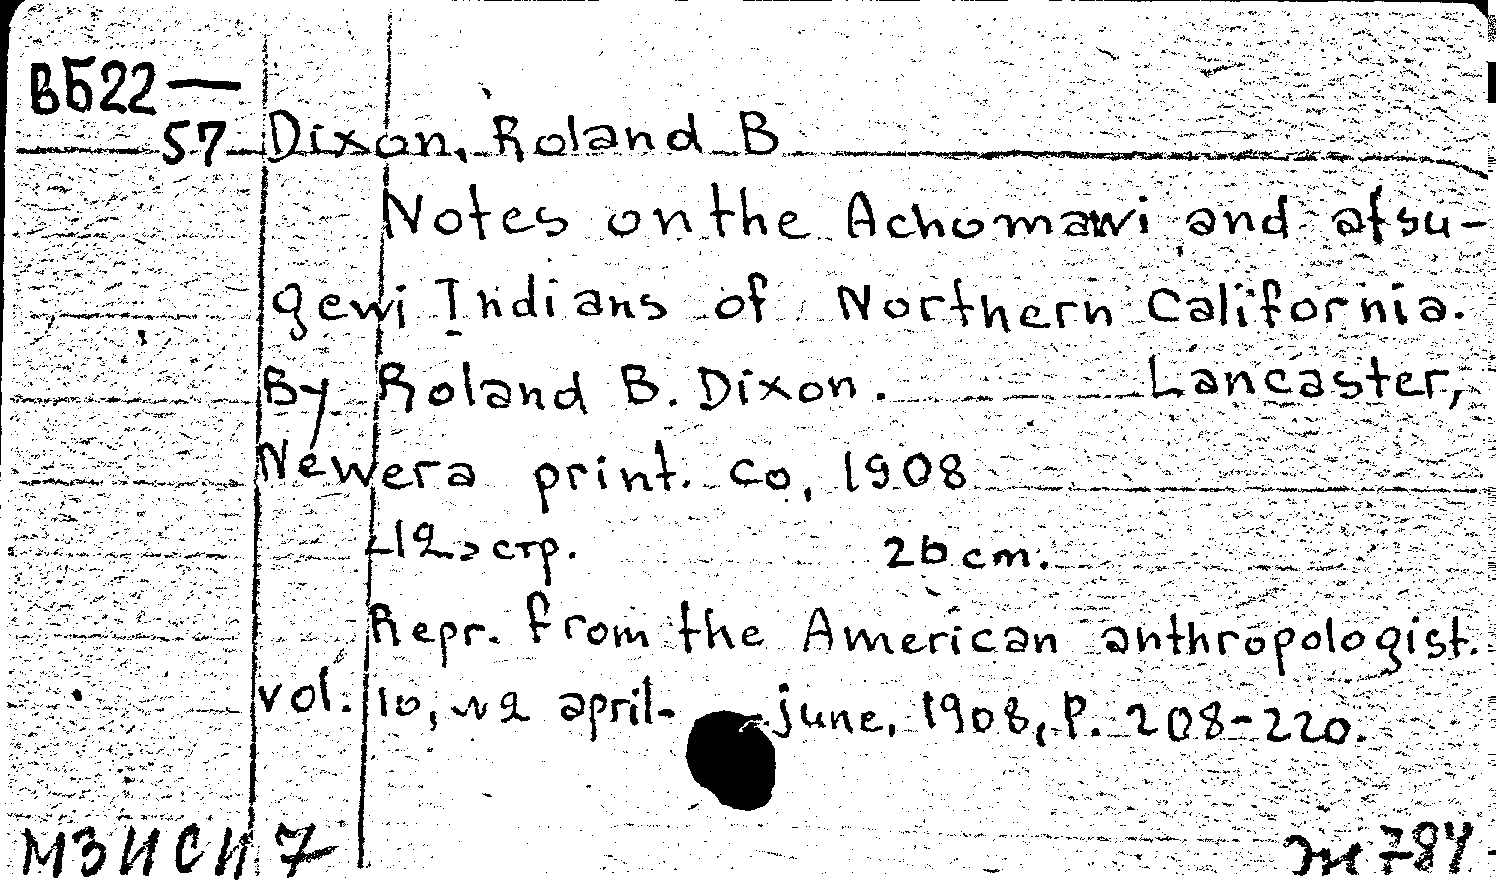 ВБ22—
57 Dixon, Roland B
Notes on the Achomawi and atsu-
gewi Indians of Northern California.
By Roland B. Dixon. Lancaster,
Newera print. Co, 1908
212 стр. 26 cm.
Repr. from the American anthropologist.
vol. 10, N2 april- june, 1908, P. 208-220.
МЗИСИ 7 Ж 784